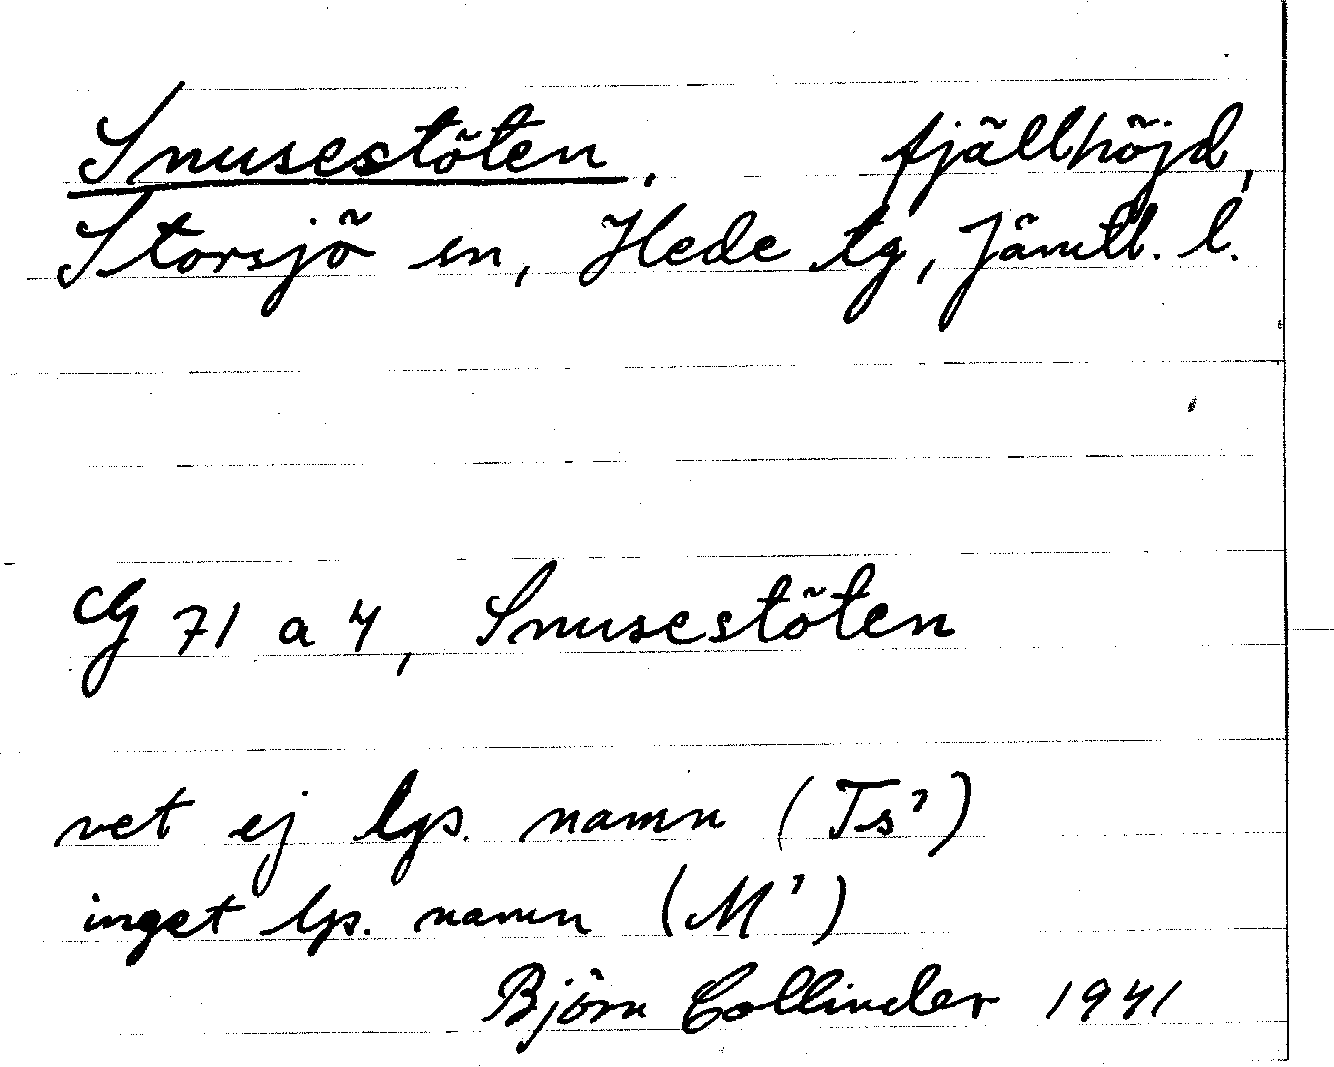 Snusestöten. fjällhöjd,
Storsjö sn, Hede tg, Jämtl. l.
G 71 a 4, Snusestöten
vet ej lps. namn (Ts')
inget lp. namn (M')
Björn Collinder 1941